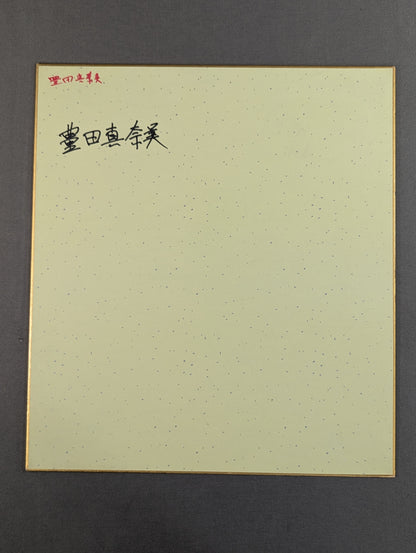 豊田真奈美
豊田真奈美